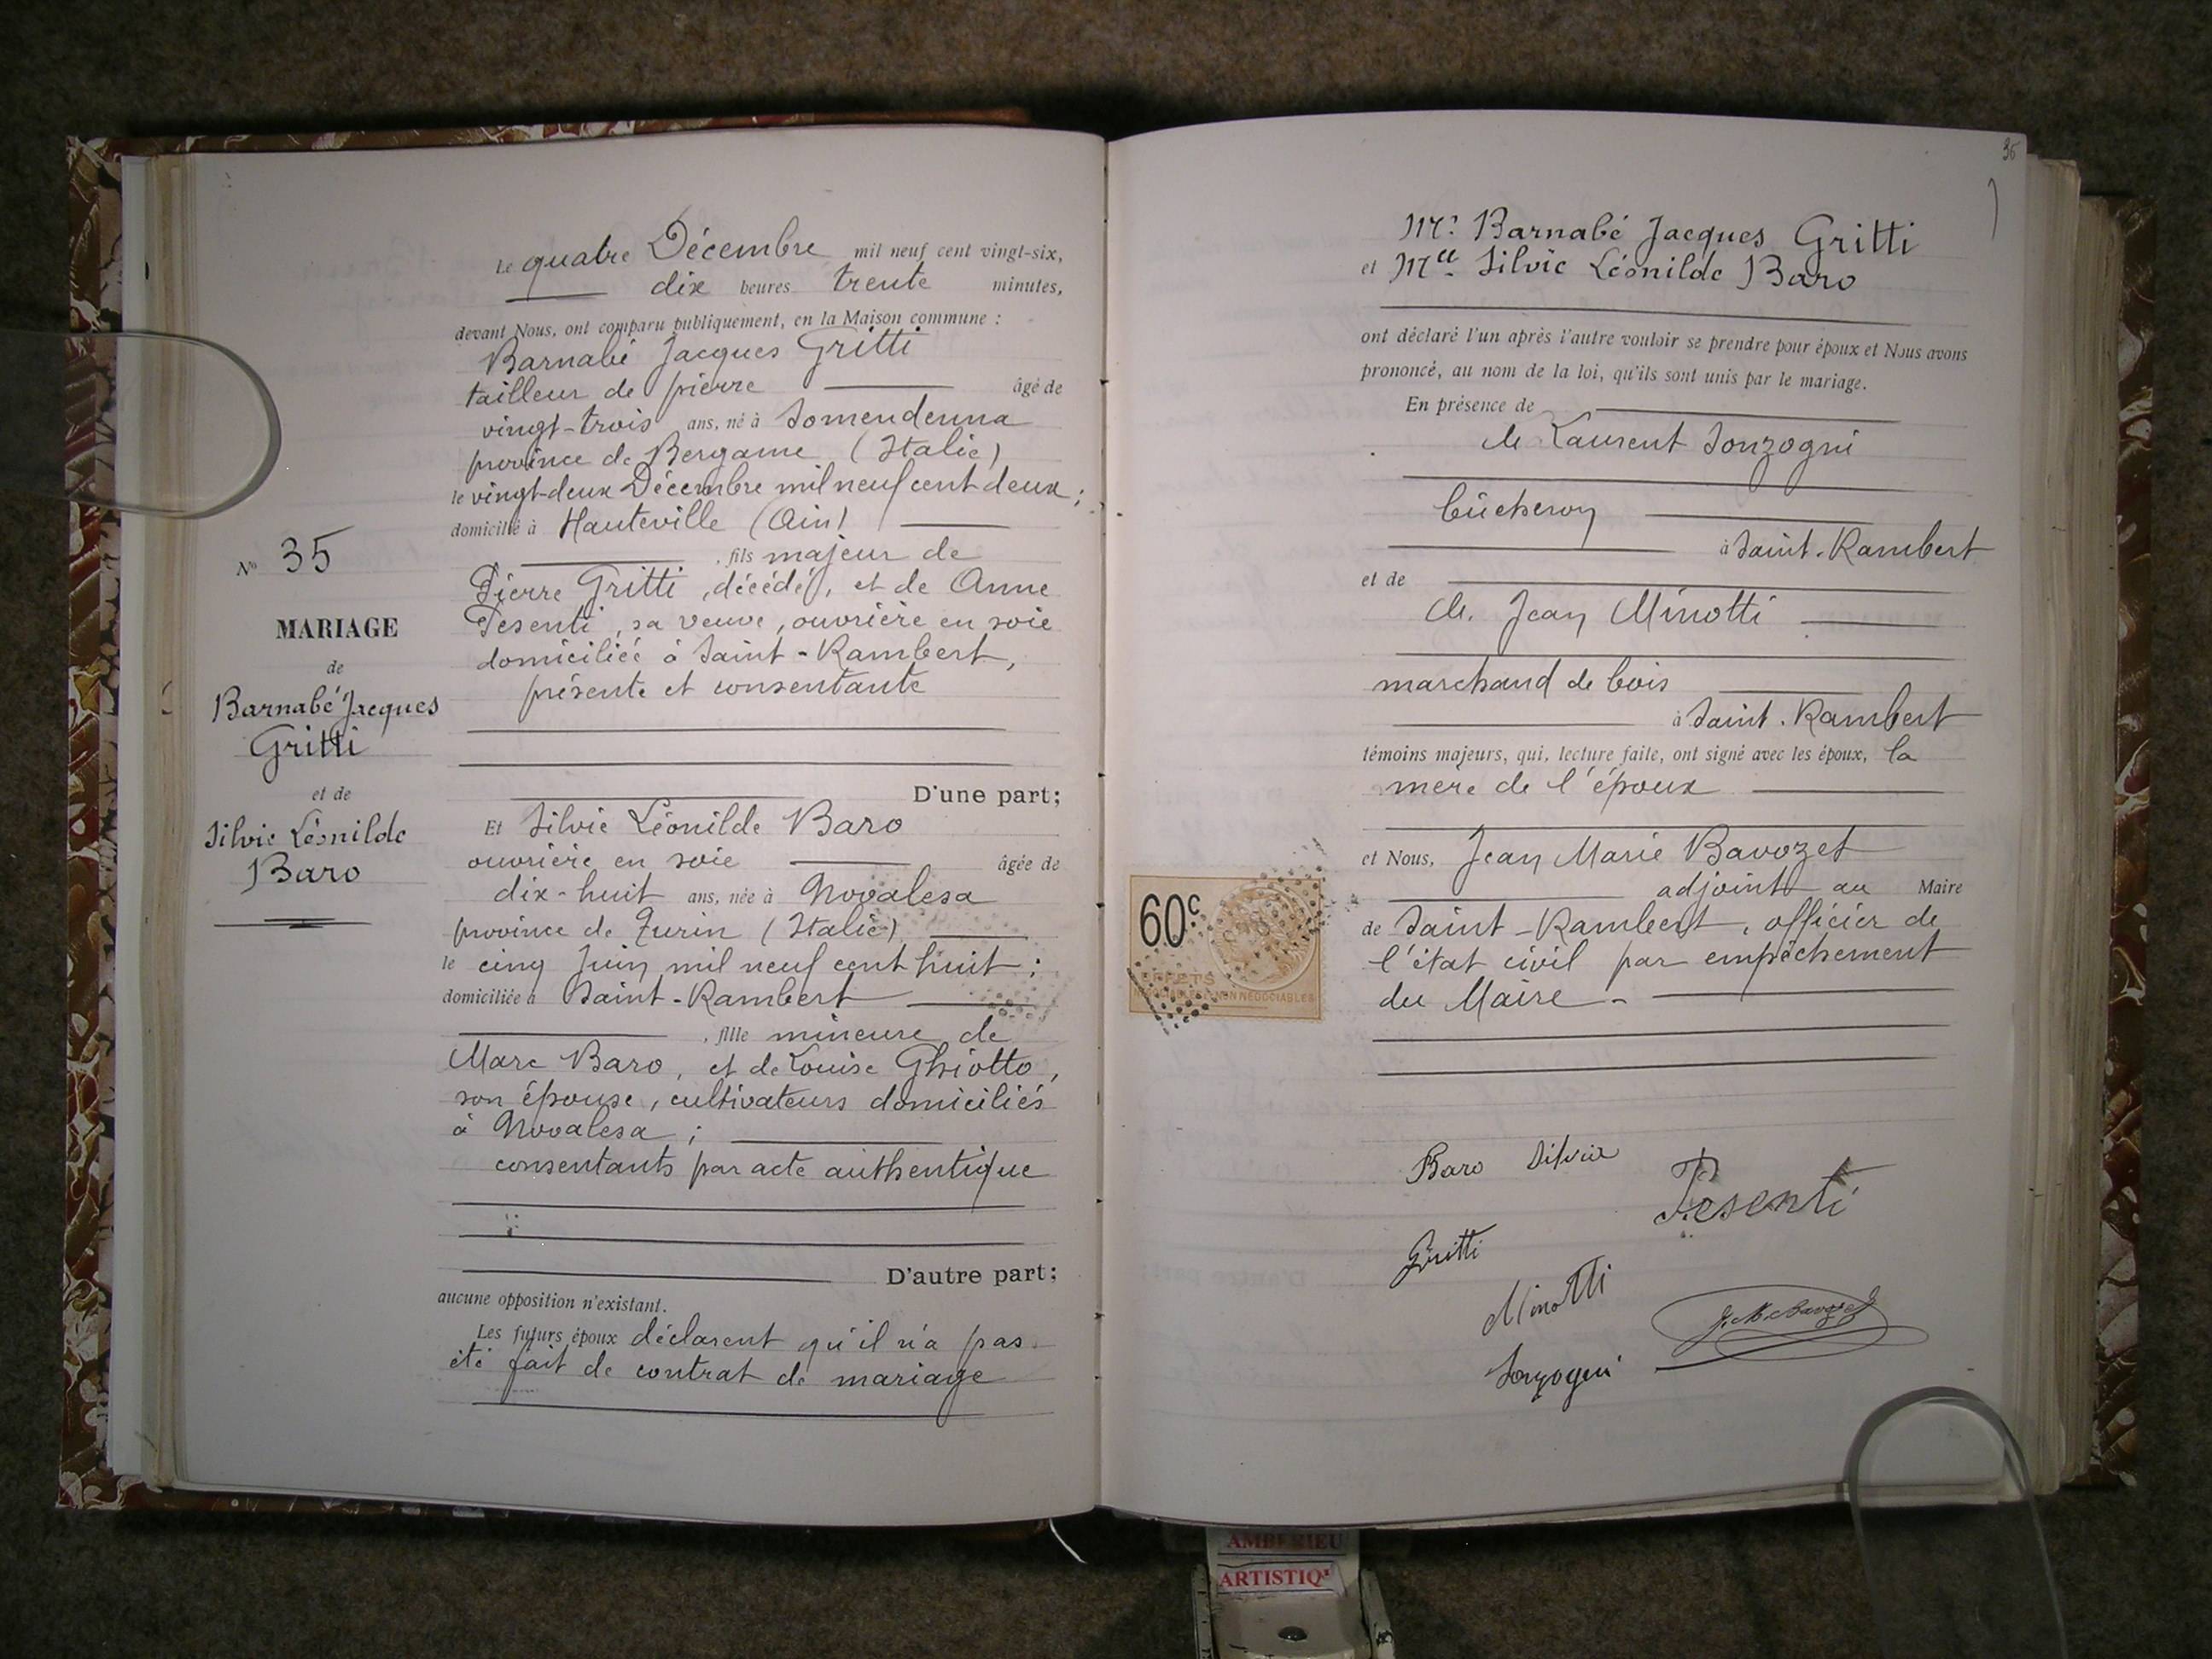 N° 35
MARIAGE
de
Barnabé Jacques
Gritti
et de
Silvie Léonilde
Baro
Le quatre Décembre mil neuf cent vingt-six,
dix heures trente minutes,
devant Nous, ont comparu publiquement, en la Maison commune :
Barnabé Jacques Gritti
tailleur de pierre âgé de
vingt-trois ans, né à Somendenna
province de Bergame (Italie)
le vingt-deux Décembre mil neuf cent deux ;
domicilié à Hauteville (Ain)
, fils majeur de
Pierre Gritti, décédé, et de Anne
Pesenti, sa veuve, ouvrière en soie
domiciliée à Saint-Rambert,
présente et consentante
D'une part ;
Et Silvie Léonilde Baro
ouvrière en soie âgée de
dix-huit ans, née à Novalesa
province de Turin (Italie)
le cinq Juin mil neuf cent huit ;
domiciliée à Saint-Rambert
, fille mineure de
Marc Baro, et de Louise Ghiotto,
son épouse, cultivateurs domiciliés
à Novalesa ;
consentants par acte authentique
D'autre part ;
aucune opposition n'existant.
Les futurs époux déclarent qu'il n'a pas
été fait de contrat de mariage
36
Mr. Barnabé Jacques Gritti
et Melle Silvie Léonilde Baro
ont déclaré l'un après l'autre vouloir se prendre pour époux et Nous avons
prononcé, au nom de la loi, qu'ils sont unis par le mariage.
En présence de
M. Laurent Sonzogni
bûcheron
à Saint-Rambert
et de
M. Jean Minotti
marchand de bois
à Saint-Rambert
témoins majeurs, qui, lecture faite, ont signé avec les époux, la
mère de l'époux
et Nous, Jean Marie Bavozet
adjoint au Maire
de Saint-Rambert, officier de
l'état civil par empêchement
du Maire -
60c
EFFETS
NON NÉGOCIABLES
Baro Silvia
Pesenti
Gritti
Minotti
J. M. Bavozet
Sonzogni
AMBERIEU
ARTISTIQ